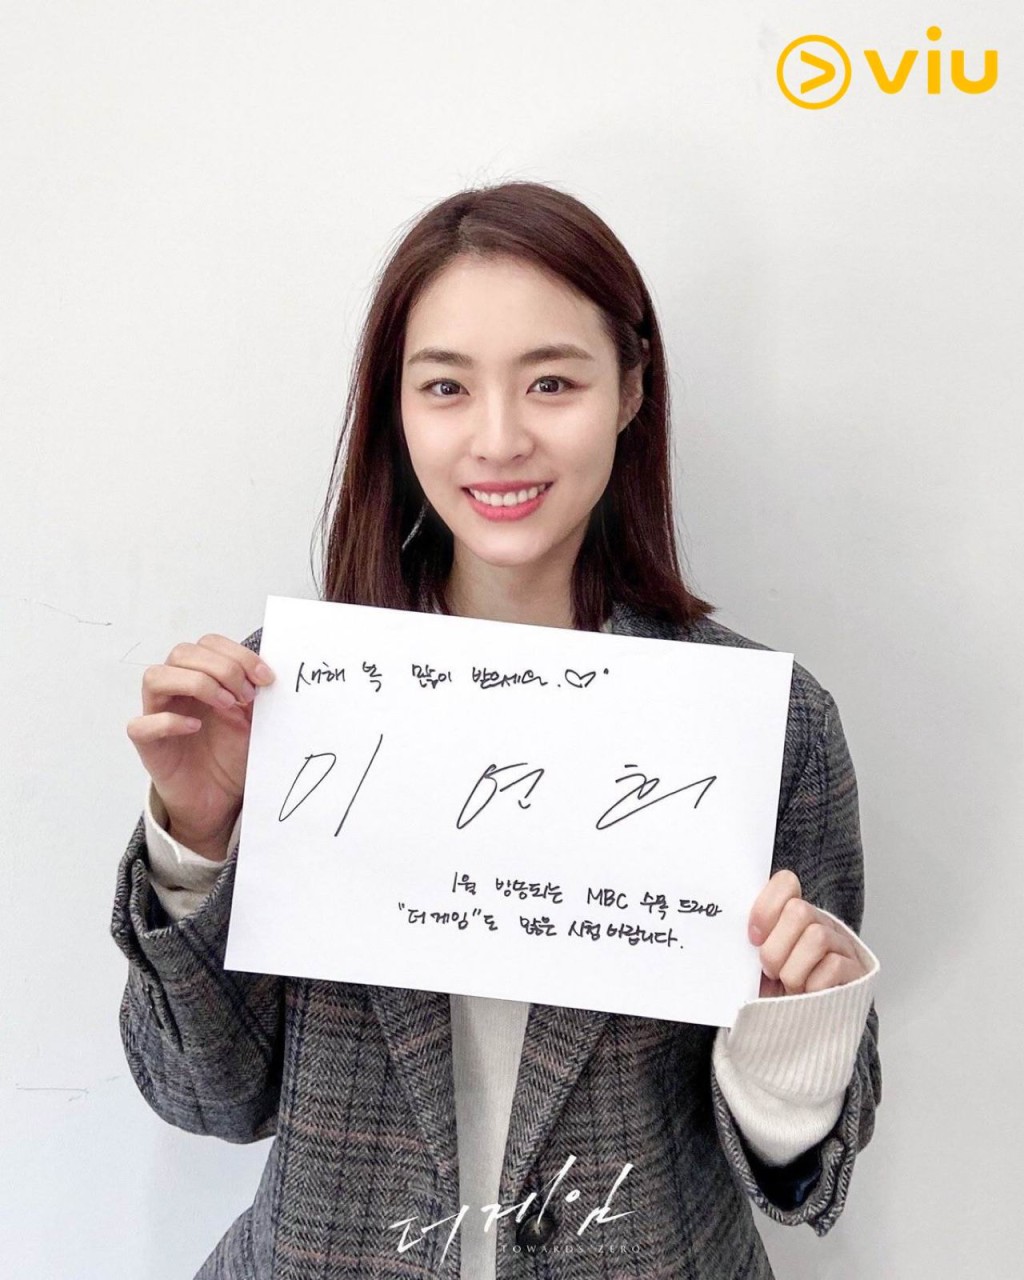 viu
새해 복 많이 받으세요. ♡
이 연 희
1월 방송되는 MBC 수목 드라마
"더 게임"도 많은 시청 바랍니다.
더 게임
TOWARDS ZERO